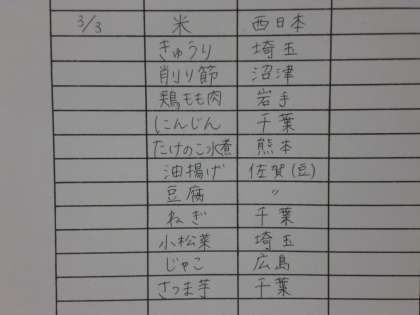 3/3 米 西日本
きゅうり 埼玉
削り節 沼津
鶏もも肉 岩手
にんじん 千葉
たけのこ水煮 熊本
油揚げ 佐賀(豆)
豆腐 〃
ねぎ 千葉
小松菜 埼玉
じゃこ 広島
さつま芋 千葉